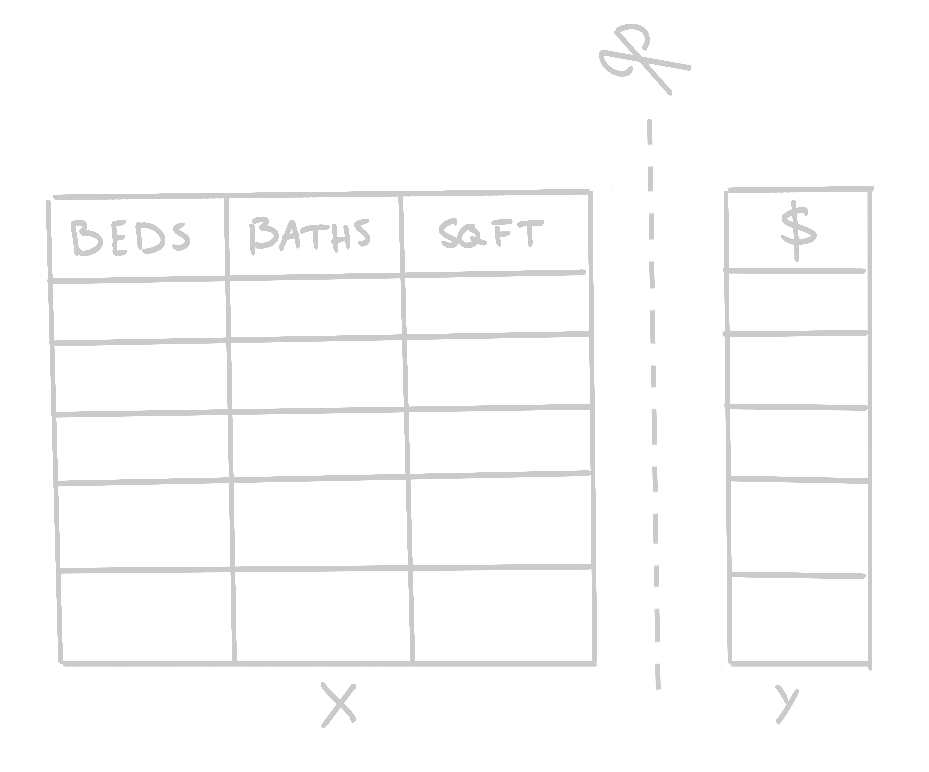 BEDS BATHS SQFT $
X y